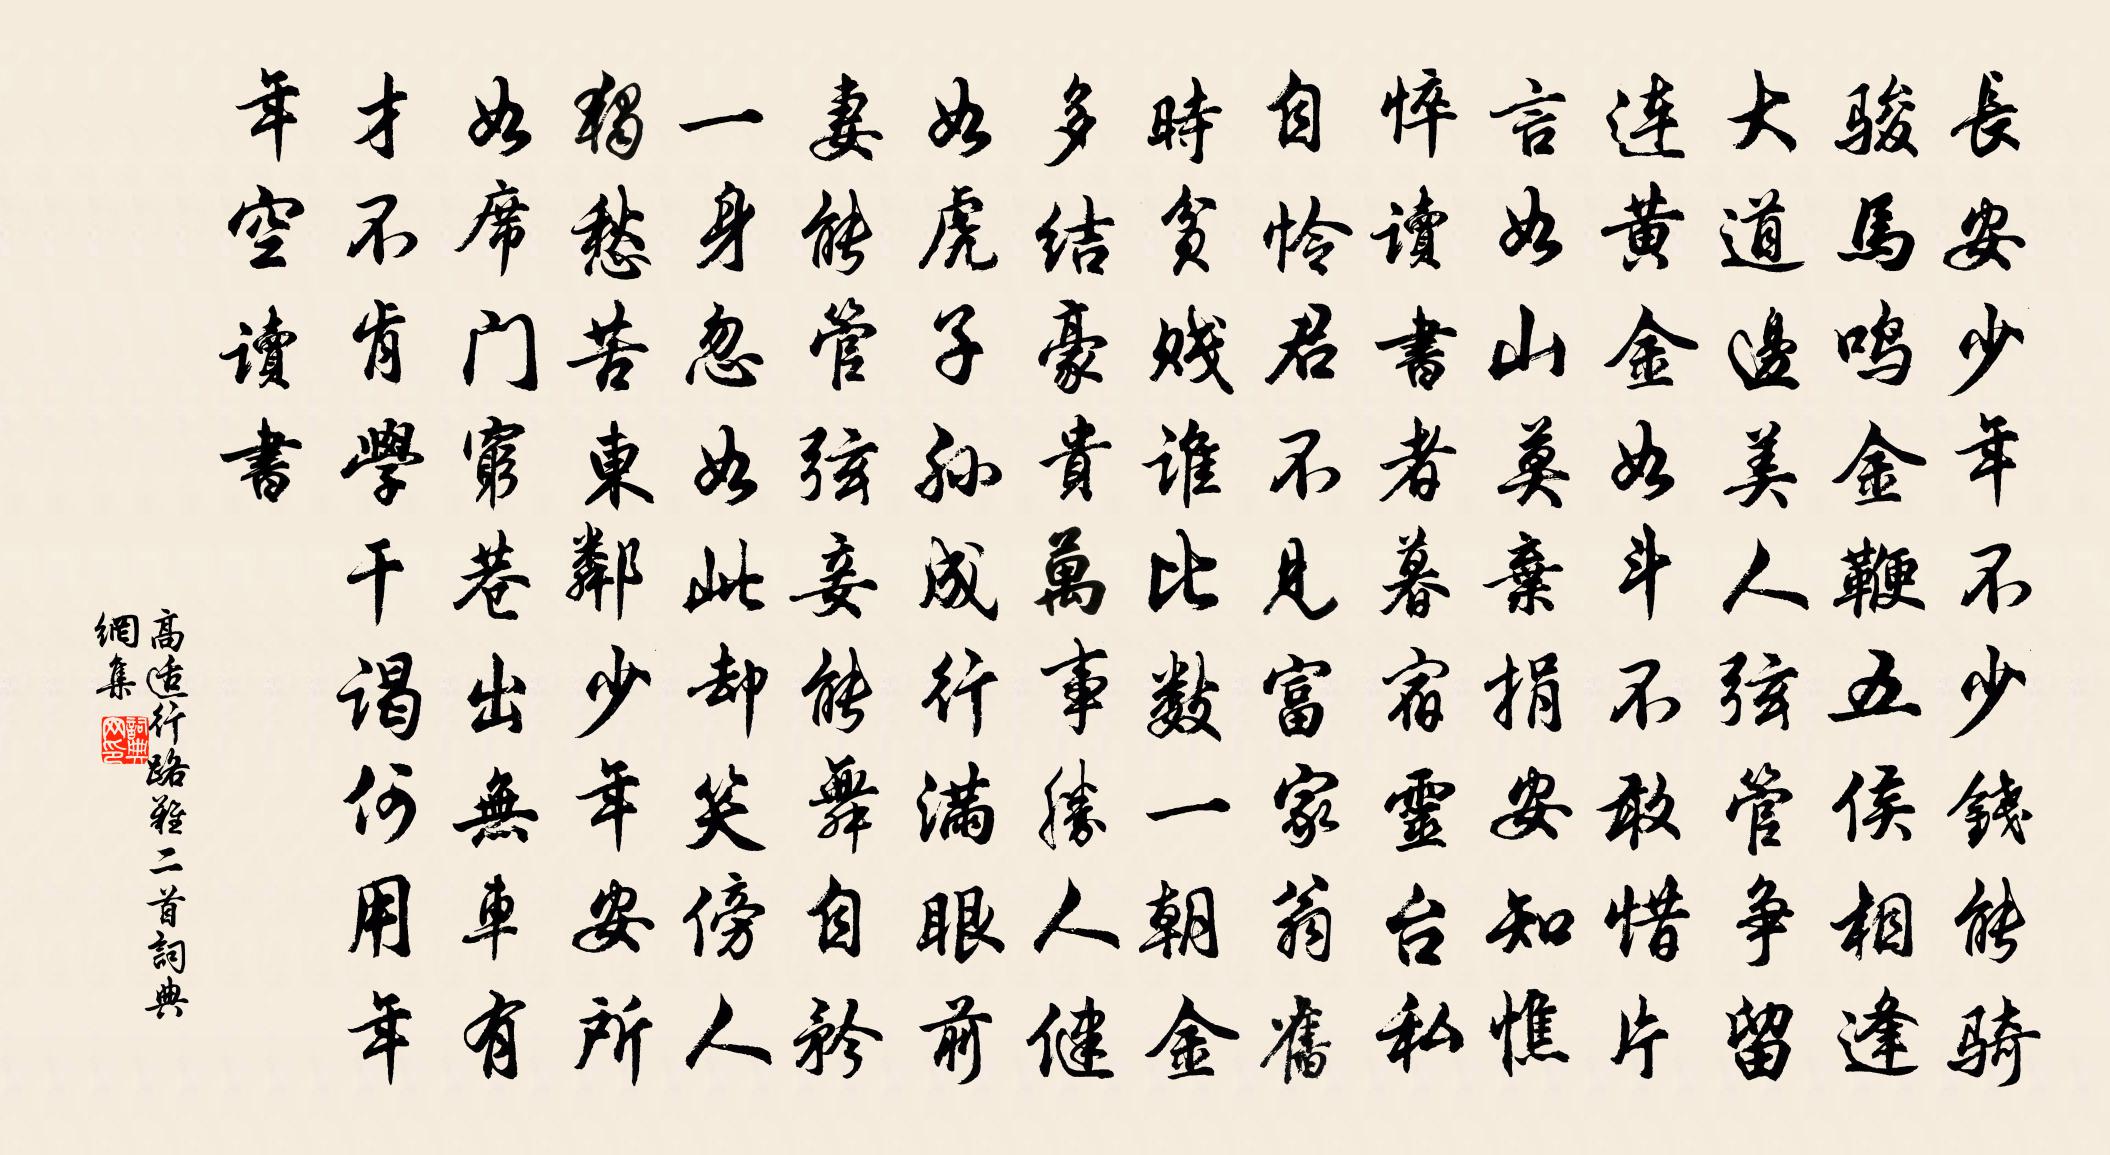 長安少年不少錢能骑
骏馬鸣金鞭五侯相逢
大道邊美人弦管争留
连黄金如斗不敢惜片
言如山莫棄捐安知憔
悴讀書者暮宿靈台私
自怜君不見富家翁舊
時贫贱谁比数一朝金
多结豪貴萬事勝人健
如虎子孙成行满眼前
妻能管弦妾能舞自矜
一身忽如此却笑傍人
獨愁苦東鄰少年安所
如席门窮巷出無車有
才不肯學干谒何用年
年空讀書
高适行路難二首詞典
網集
詞典
网印